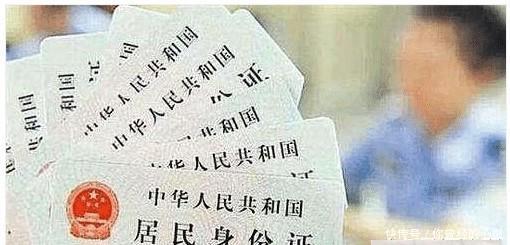 中华人民共和国
中华人民共和国
中华人民共和国
份证
中华人民共和国
中华人民共和国
居民身份证
快传号/